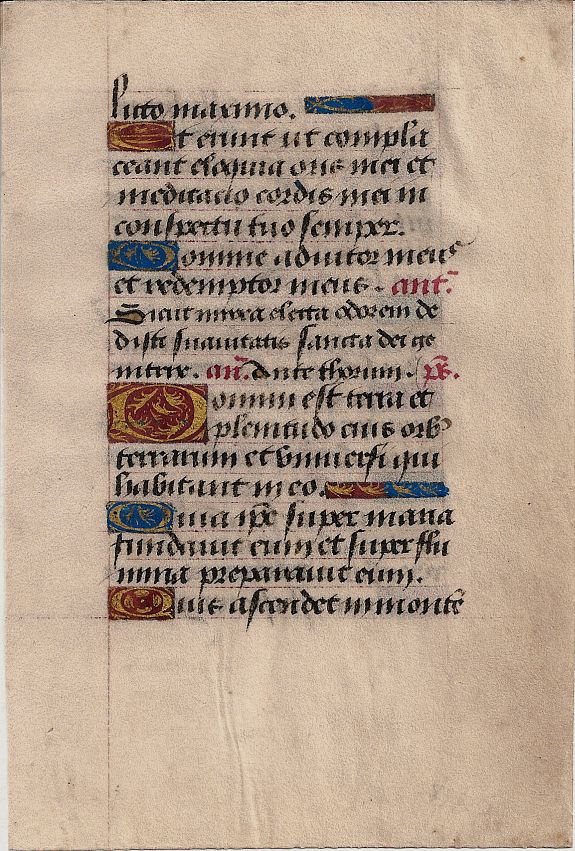 licto maximo.
Et erunt ut compla
ceant eloquia oris mei et
meditacio cordis mei in
conspectu tuo semper.
Domine adiutor meus
et redemptor meus. ant̃.
Sicut mirra electa odorem de
disti suavitatis sancta dei ge
nitrix. añ. Ante thorum. p̃s.
Domini est terra et
plenitudo eius orbꝰ
terrarum et universi qui
habitant in eo.
Quia ip̃e super maria
fundavit eum et super flu
mina preparavit eum.
Quis ascendet in montẽ